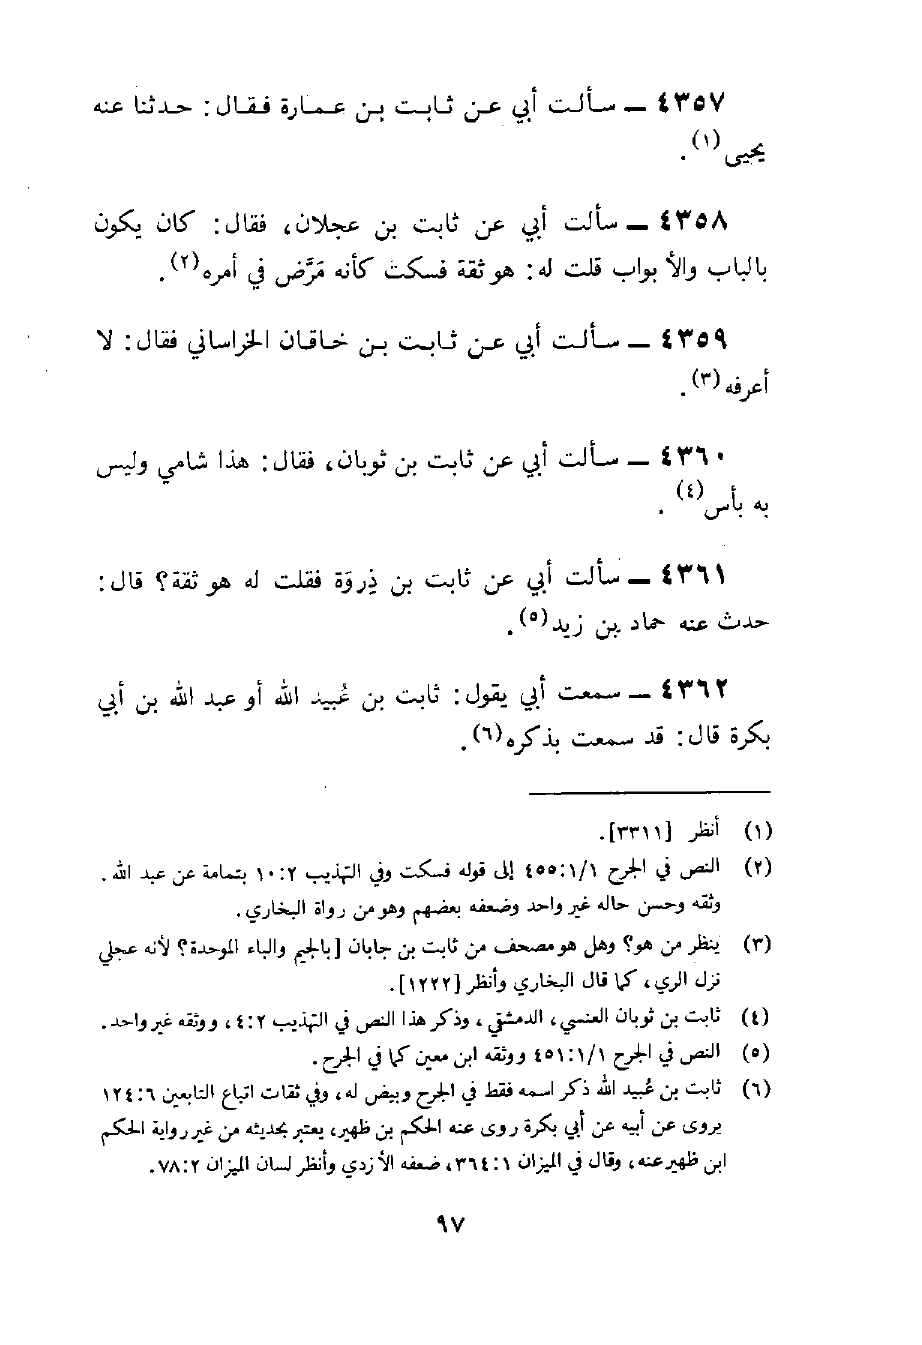 ٤٣٥٧ ــ سألت أبي عن ثابت بن عمارة فقال: حدثنا عنه
يحيى(١).
٤٣٥٨ ــ سألت أبي عن ثابت بن عجلان، فقال: كان يكون
بالباب والأبواب قلت له: هو ثقة فسكت كأنه مَرَّض في أمره(٢).
٤٣٥٩ ــ سألت أبي عن ثابت بن خاقان الخراساني فقال: لا
أعرفه(٣).
٤٣٦٠ ــ سألت أبي عن ثابت بن ثوبان، فقال: هذا شامي وليس
به بأس(٤).
٤٣٦١ ــ سألت أبي عن ثابت بن ذِروَة فقلت له هو ثقة؟ قال:
حدث عنه حماد بن زيد(٥).
٤٣٦٢ ــ سمعت أبي يقول: ثابت بن عُبيد الله أو عبد الله بن أبي
بكرة قال: قد سمعت بذكره(٦).
(١) أنظر [٣٣١١].
(٢) النص في الجرح ٤٥٥:١/١ إلى قوله فسكت وفي التهذيب ١٠:٢ بتمامة عن عبد الله.
وثقه وحسن حاله غير واحد وضعفه بعضهم وهو من رواة البخاري.
(٣) ينظر من هو؟ وهل هو مصحف من ثابت بن جابان [بالجيم والباء الموحدة؟ لأنه عجلي
نزل الري، كما قال البخاري وأنظر [١٢٢٢].
(٤) ثابت بن ثوبان العنسي، الدمشقي، وذكر هذا النص في التهذيب ٤:٢، ووثقه غير واحد.
(٥) النص في الجرح ٤٥١:١/١ ووثقه ابن معين كما في الجرح.
(٦) ثابت بن عُبيد الله ذكر اسمه فقط في الجرح وبيض له، وفي ثقات اتباع التابعين ١٢٤:٦
يروى عن أبيه عن أبي بكرة روى عنه الحكم بن ظهير، يعتبر بحديثه من غير رواية الحكم
ابن ظهير عنه، وقال في الميزان ٣٦٤:١، ضعفه الأزدي وأنظر لسان الميزان ٧٨:٢.
٩٧